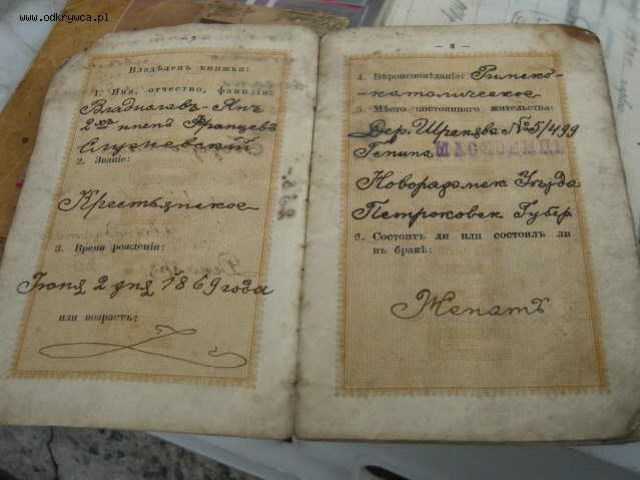 www.odkrywca.pl
Владѣлецъ книжки:
1. Имя, отчество, фамилія:
Владиславъ-Янъ
2хъ именъ Францевъ
2. Званіе:
Крестьянское
3. Время рожденія:
Іюня 2 дня 1869 года
или возрастъ:
— 3 —
4. Вѣроисповѣданіе: Римско-
католическое
5. Мѣсто постояннаго жительства:
Дер. №5/499
Гмина
Новорадомск Уѣзда
Петроковск Губер
6. Состоитъ ли или состоялъ ли
въ бракѣ:
Женатъ